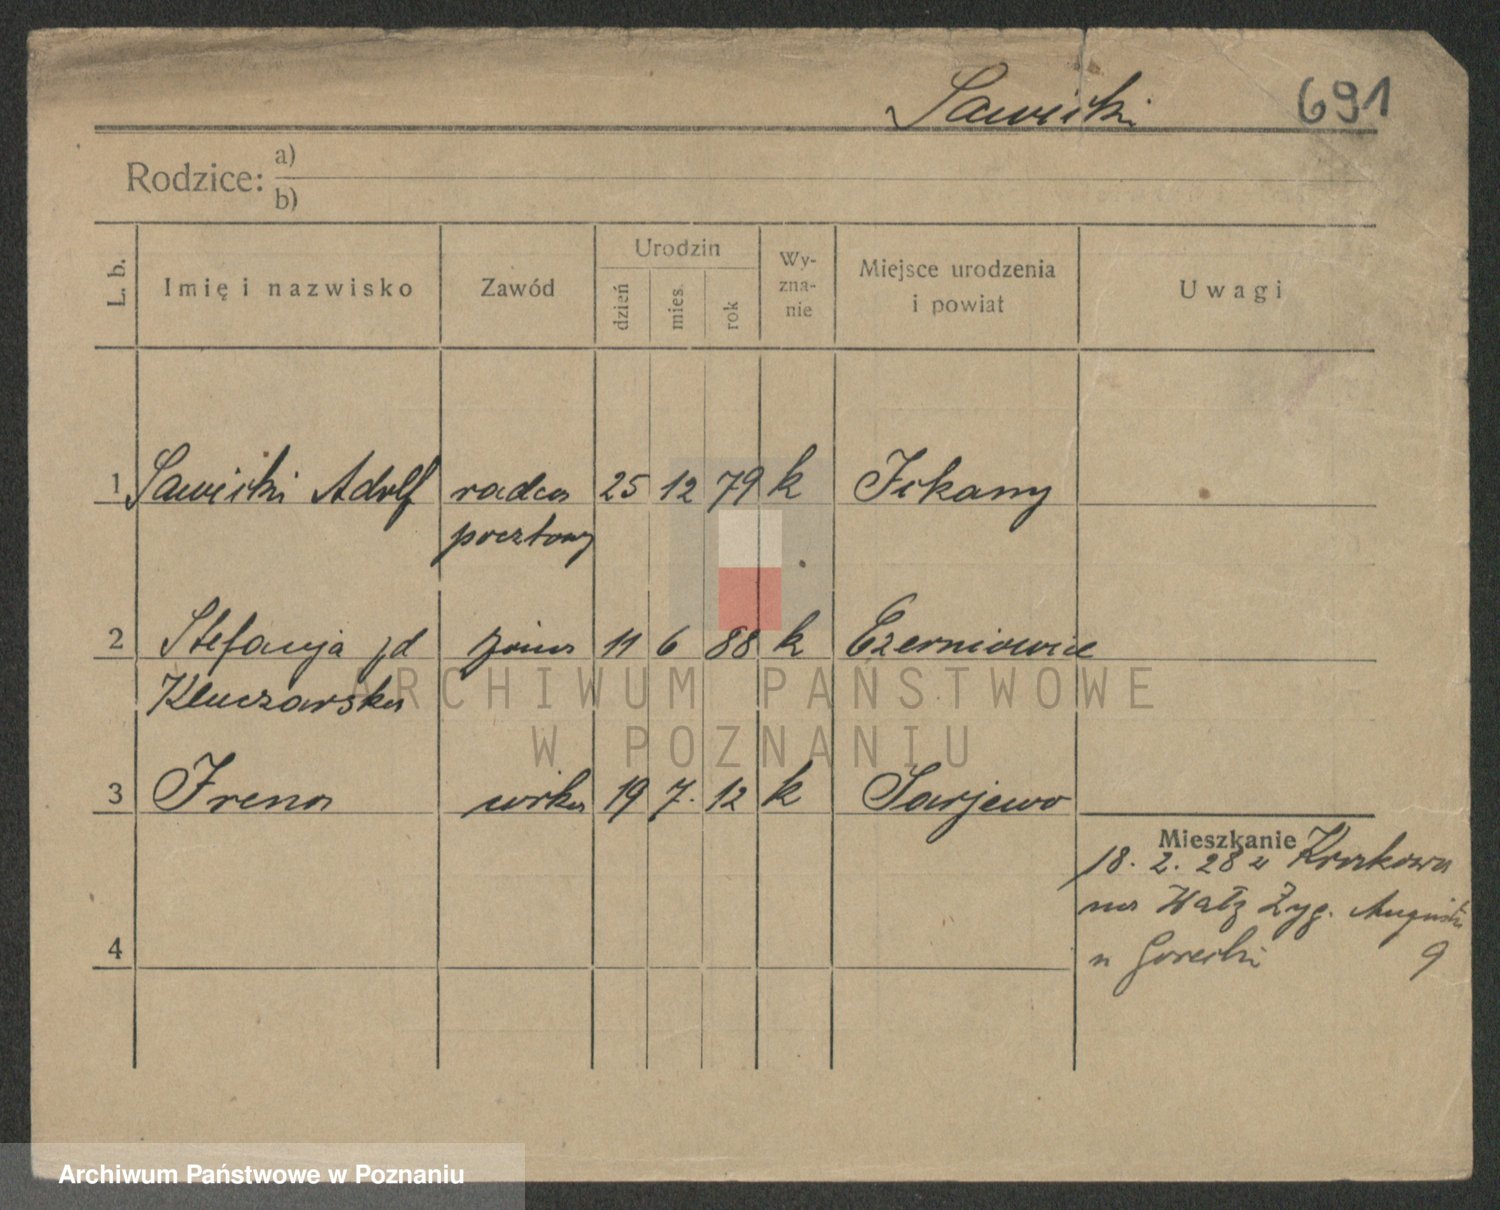 Sawicki 691
Rodzice: a)
b)
L. b. Imię i nazwisko Zawód Urodzin dzień mies. rok Wy-zna-nie Miejsce urodzenia i powiat Uwagi
1 Sawicki Adolf radca 25 12 79 k Ickany
pocztowy
2 Stefanja żona 11 6 88 k Czerniowice
Kluczarska
3 Irena córka 19 7. 12 k Sarjewo
Mieszkanie
18. 2. 28 z Krakowa
na Zyg. Augusta
u Gorecki 9
4
ARCHIWUM PAŃSTWOWE
W POZNANIU
Archiwum Państwowe w Poznaniu